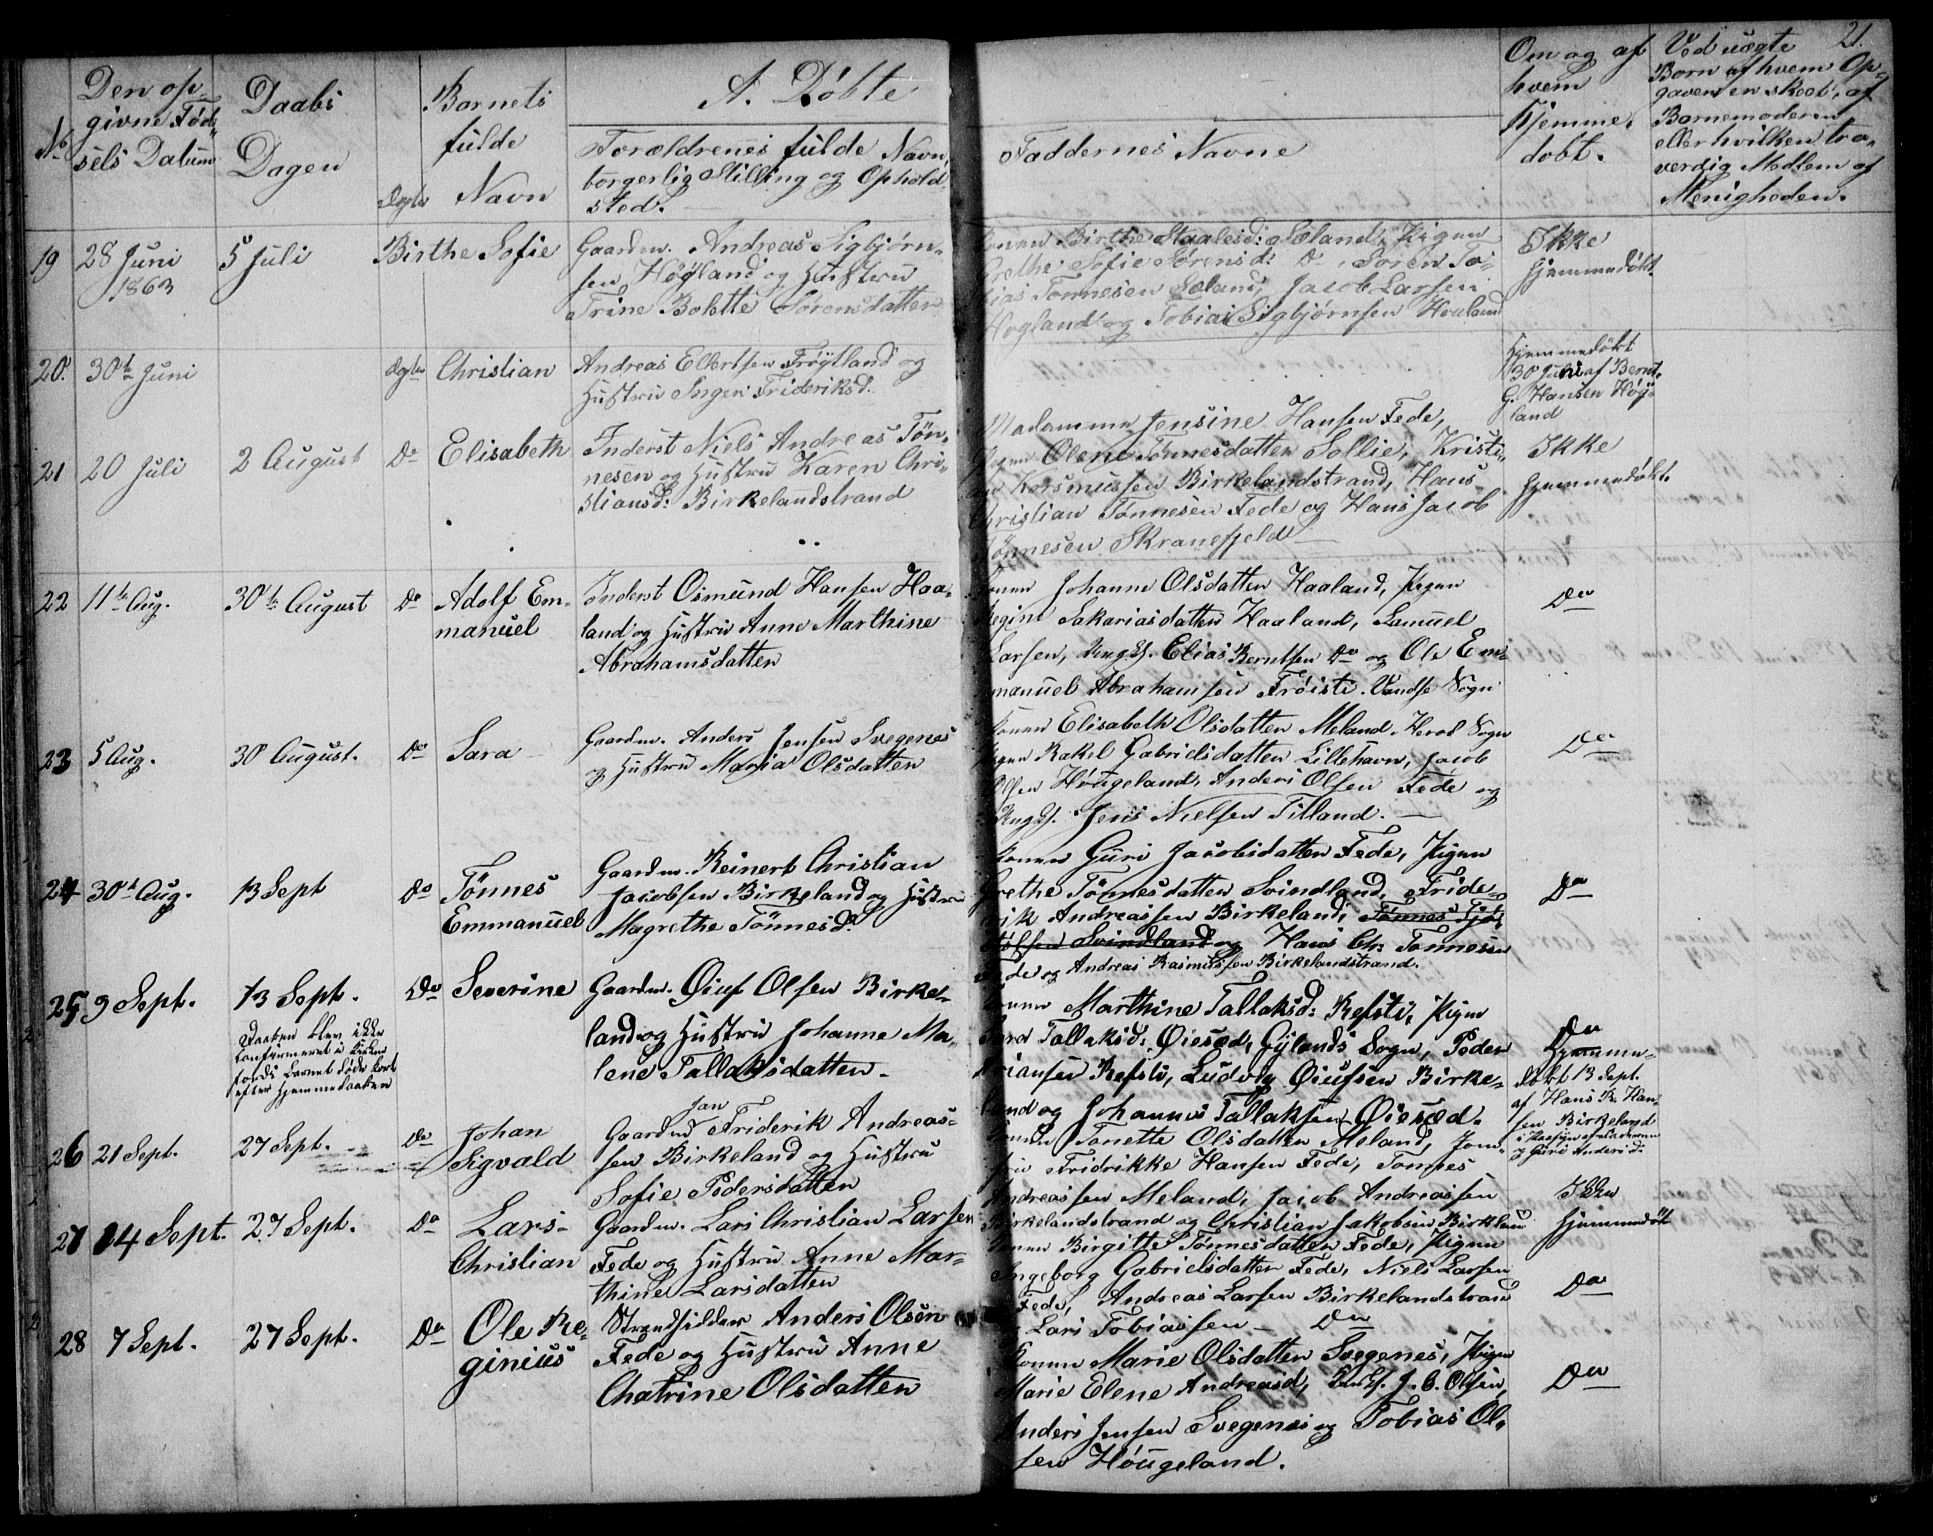 21.
A. Döbte
No
Den op-
givne Föd-
sels Datum
Daabs
Dagen
Ægte
Barnets
fulde
Navn
Forældrenes fulde Navn,
borgerlig Stilling og Ophold
sted.
Faddernes Navne
Om og af
hvem
Hjemme-
döbt.
Ved uægte
Born af hvem Op-
gaven er skeet, af
Barnemoderen
eller hvilken tro-
verdig Medlem af
Menigheden.
19 28 Juni 1863
5 Juli
Birthe Sofie
Gaardm. Andreas Sigbjørn-
sen Høyland og Hustru
Trine Bolette Sørensdatter
Konen Birthe Staalesd: Sæland, Pigen
Grethe Sofie Sørensd: Do, Søren To-
bias Tønnesen Sæland, Jacob Larsen
Høgland og Tobias Sigbjørnsen
Ikke
hjemmedøbt.
20. 30te Juni
Ægte Christian
Andreas Ellertsen Frøytland og
Hustru Inger Frideriksd.
Hjemmedøbt
30 Juni af Bernt
G. Hansen Høy-
land
21 20 Juli
2 August
Do Elisabeth
Inderst Niels Andreas Tön-
nesen og Hustru Karen Chri-
stiansd: Birkelandstrand
Madammen Jensine Hansen Fede,
Pigen Olene Tønnesdatten Sollie, Kristi-
an Rørsmussen Birkelandstrand, Hans
Christian Tønnesen Fede og Hans Jacob
Tønnesen Skranefjeld
Ikke
hjemmedøbt.
22 11te Aug.
30te August
Do Adolf Em-
manuel
Inderst Osmund Hansen Haa-
land og Hustru Anne Marthine
Abrahamsdatten
Konen Johanne Olsdatten Haaland, Pigen
Regine Sakariasdatten Haaland, Samuel
Larsen, Ungk. Elias Berntsen Do og Ole Em-
manuel Abrahamsen Frøisti. Vandse Sogn
Do
23 5 Aug.
30 August.
Do Sara
Gaardm. Anders Jensen Svegenes
og Hustru Maria Olsdatten
Konen Elisabeth Olsdatten Meland. Herad Sogn
Pigen Rakel Gabrielsdatten Lillehavn, Jacob
Olsen Høugeland, Anders Olsen Fede og
Ungk. Jens Nielsen Tilland.
Do
24 30te Aug.
13 Sept
Do Tønnes
Emmanuel
Gaardm. Reinert Christian
Jacobsen Birkeland og Hustru
Magrethe Tønnesd.
Konen Guri Jacobsdatten Fede, Pigen
Grethe Tønnesdatten Svindland, Fride-
rik Andreassen Birkeland, Tønnes Tjøs-
tolfsen Svindland og Hans Chr. Tønnessen
Fede og Andreas Rasmussen Birkelandstrand.
Do
25 9 Sept.
13 Sept.
Daaben blev ikke
confirmeret i Kirken
fordi Barnet døde kort
efter Hjemmedaaben
Do Severine
Gaardm. Øiuf Olsen Birke-
land og Hustru Johanne Ma-
lene Tallaksdatten
Konen Marthine Tallaksd: Refsti, Pigen
Sara Tallaksd: Øiesæd, Gylands Sogn, Peder
Refsti, Ludvig Øiufsen Birke-
land og Johannes Tallaksen Øiesæd.
Do
Hjemme-
døbt 13 Sept.
af Hans R. Han-
sen Birkeland
i Paasyn af Faderen
og Guri Andersd:
26 21 Sept.
27 Sept.
Do Johan
Sigvald
Gaardmd Jan Friderik Andreas-
sen Birkeland og Hustru
Sofie Pedersdatten
Konen Tonette Olsdatten Meland, Jom-
fru Fridrikke Hansen Fede, Tønnes
Andreassen Meland, Jacob Andreassen
Birkelandstrand og Christian Jakobsen Birkeland
Ikke
hjemmedøbt
27 14 Sept.
27 Sept.
Do Lars
Christian
Gaardm. Lars Christian Larsen
Fede og Hustru Anne Mar-
thine Larsdatten
Konen Birgitte Tønnesdatten Fede, Pigen
Ingeborg Gabrielsdatten Fede, Niels Larsen
Fede, Andreas Larsen Birkelandstrand
Lars Tobiassen Do
Do
28 7 Sept.
27 Sept.
Do Ole Re-
ginius
Strandsidder Anders Olsen
Fede og Hustru Anne
Chatrine Olsdatten
Konen Marie Olsdatten Svegenes, Pigen
Marie Elene Andreasd, Ungk. J. C. Olsen,
Anders Jensen Svegenes og Tobias Ol-
sen Høugeland.
Do